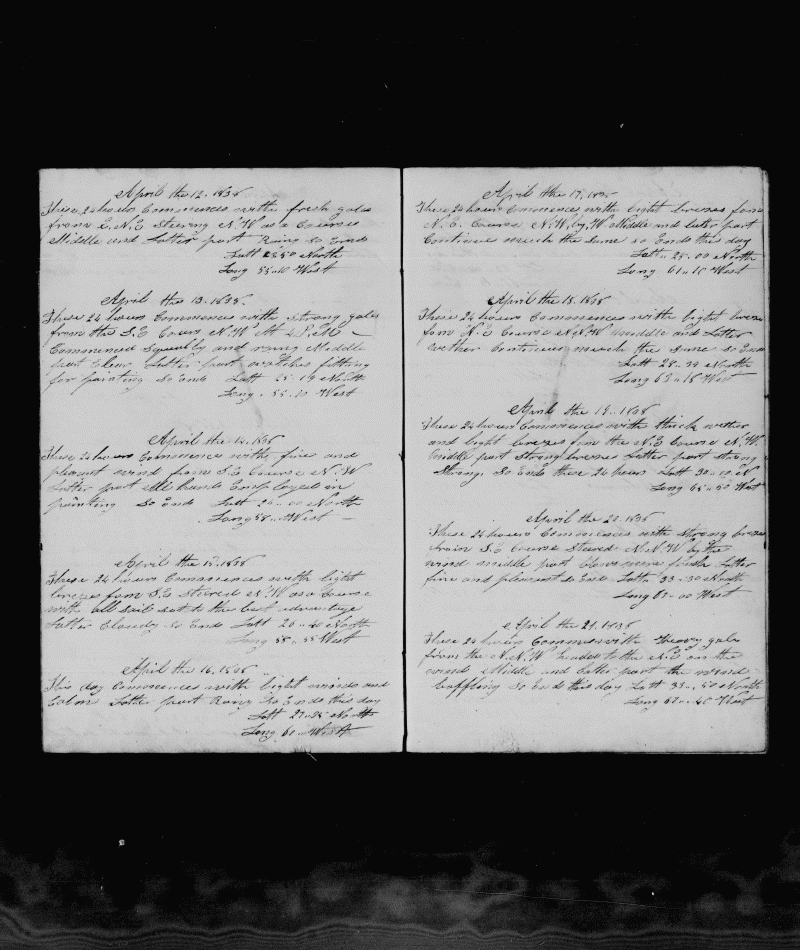 April the 12. 1838
These 24 hours Commences with fresh gales
from E.N.E Steering N.W as a Course
Middle and Latter part Rainy So Ends
Latt 23 50 North
Long 53 40 West
April the 13. 1838.
These 24 hours Commences with strong gales
from the S.E Cours N.W At 4 P.M
Commenced Squally and rainy Middle
part Clear Latter part watches fitting
for painting So Ends Latt 25-19 North
Long. 55-20 West
April the 14. 1838
These 24 hours Commences with fine and
pleasant wind from S.E Course N.W
Latter part All hands Employed in
painting So Ends Latt 26-00 North
Long 58 West
April the 15. 1838
These 24 hours Commences with light
brezes from S.E Steered N.W as a Course
with all sail set to the best advantage
Latter Cloudy So Ends Latt 26-40 North
Long 58-55 West
April the 16. 1838
This day Commences with light winds and
Calm Latter part Rainy So Ends this day
Latt 27-24 North
Long 60 West
April the 17, 1838
These 24 hours Commences with light brezes from
N.E. Course N.W, by, W Middle and latter part
Continues much the same so Ends this day
Latt 28-00 North
Long 61-15 West
April the 18. 1838
These 24 hours Commences with light brezes
from N.E Course N.N.W middle and Latter
wether Continues much the same so Ends
Latt 28-39 North
Long 63-18 West
April the 19. 1838
These 24 hours Commences with thick wether
and light brezes from the N.E Course N.W.
middle part Strong brezes Latter part strong
Strong. So Ends these 24 hours Latt 30-10 N
Long 65-30 West
April the 20. 1838
These 24 hours Commences with strong brezes
from S.E Course Steered N.N.W by the
wind middle part blows more fresh Latter
fine and pleasant So Ends Latt 33-30 North
Long 67-00 West
April the 21. 1838
These 24 hours Commes with Heavy gale
from the N.N.W headed to the on the
wind Middle and Latter part the wind
baffling So Ends this day Latt 33-50 North
Long 67-40 West